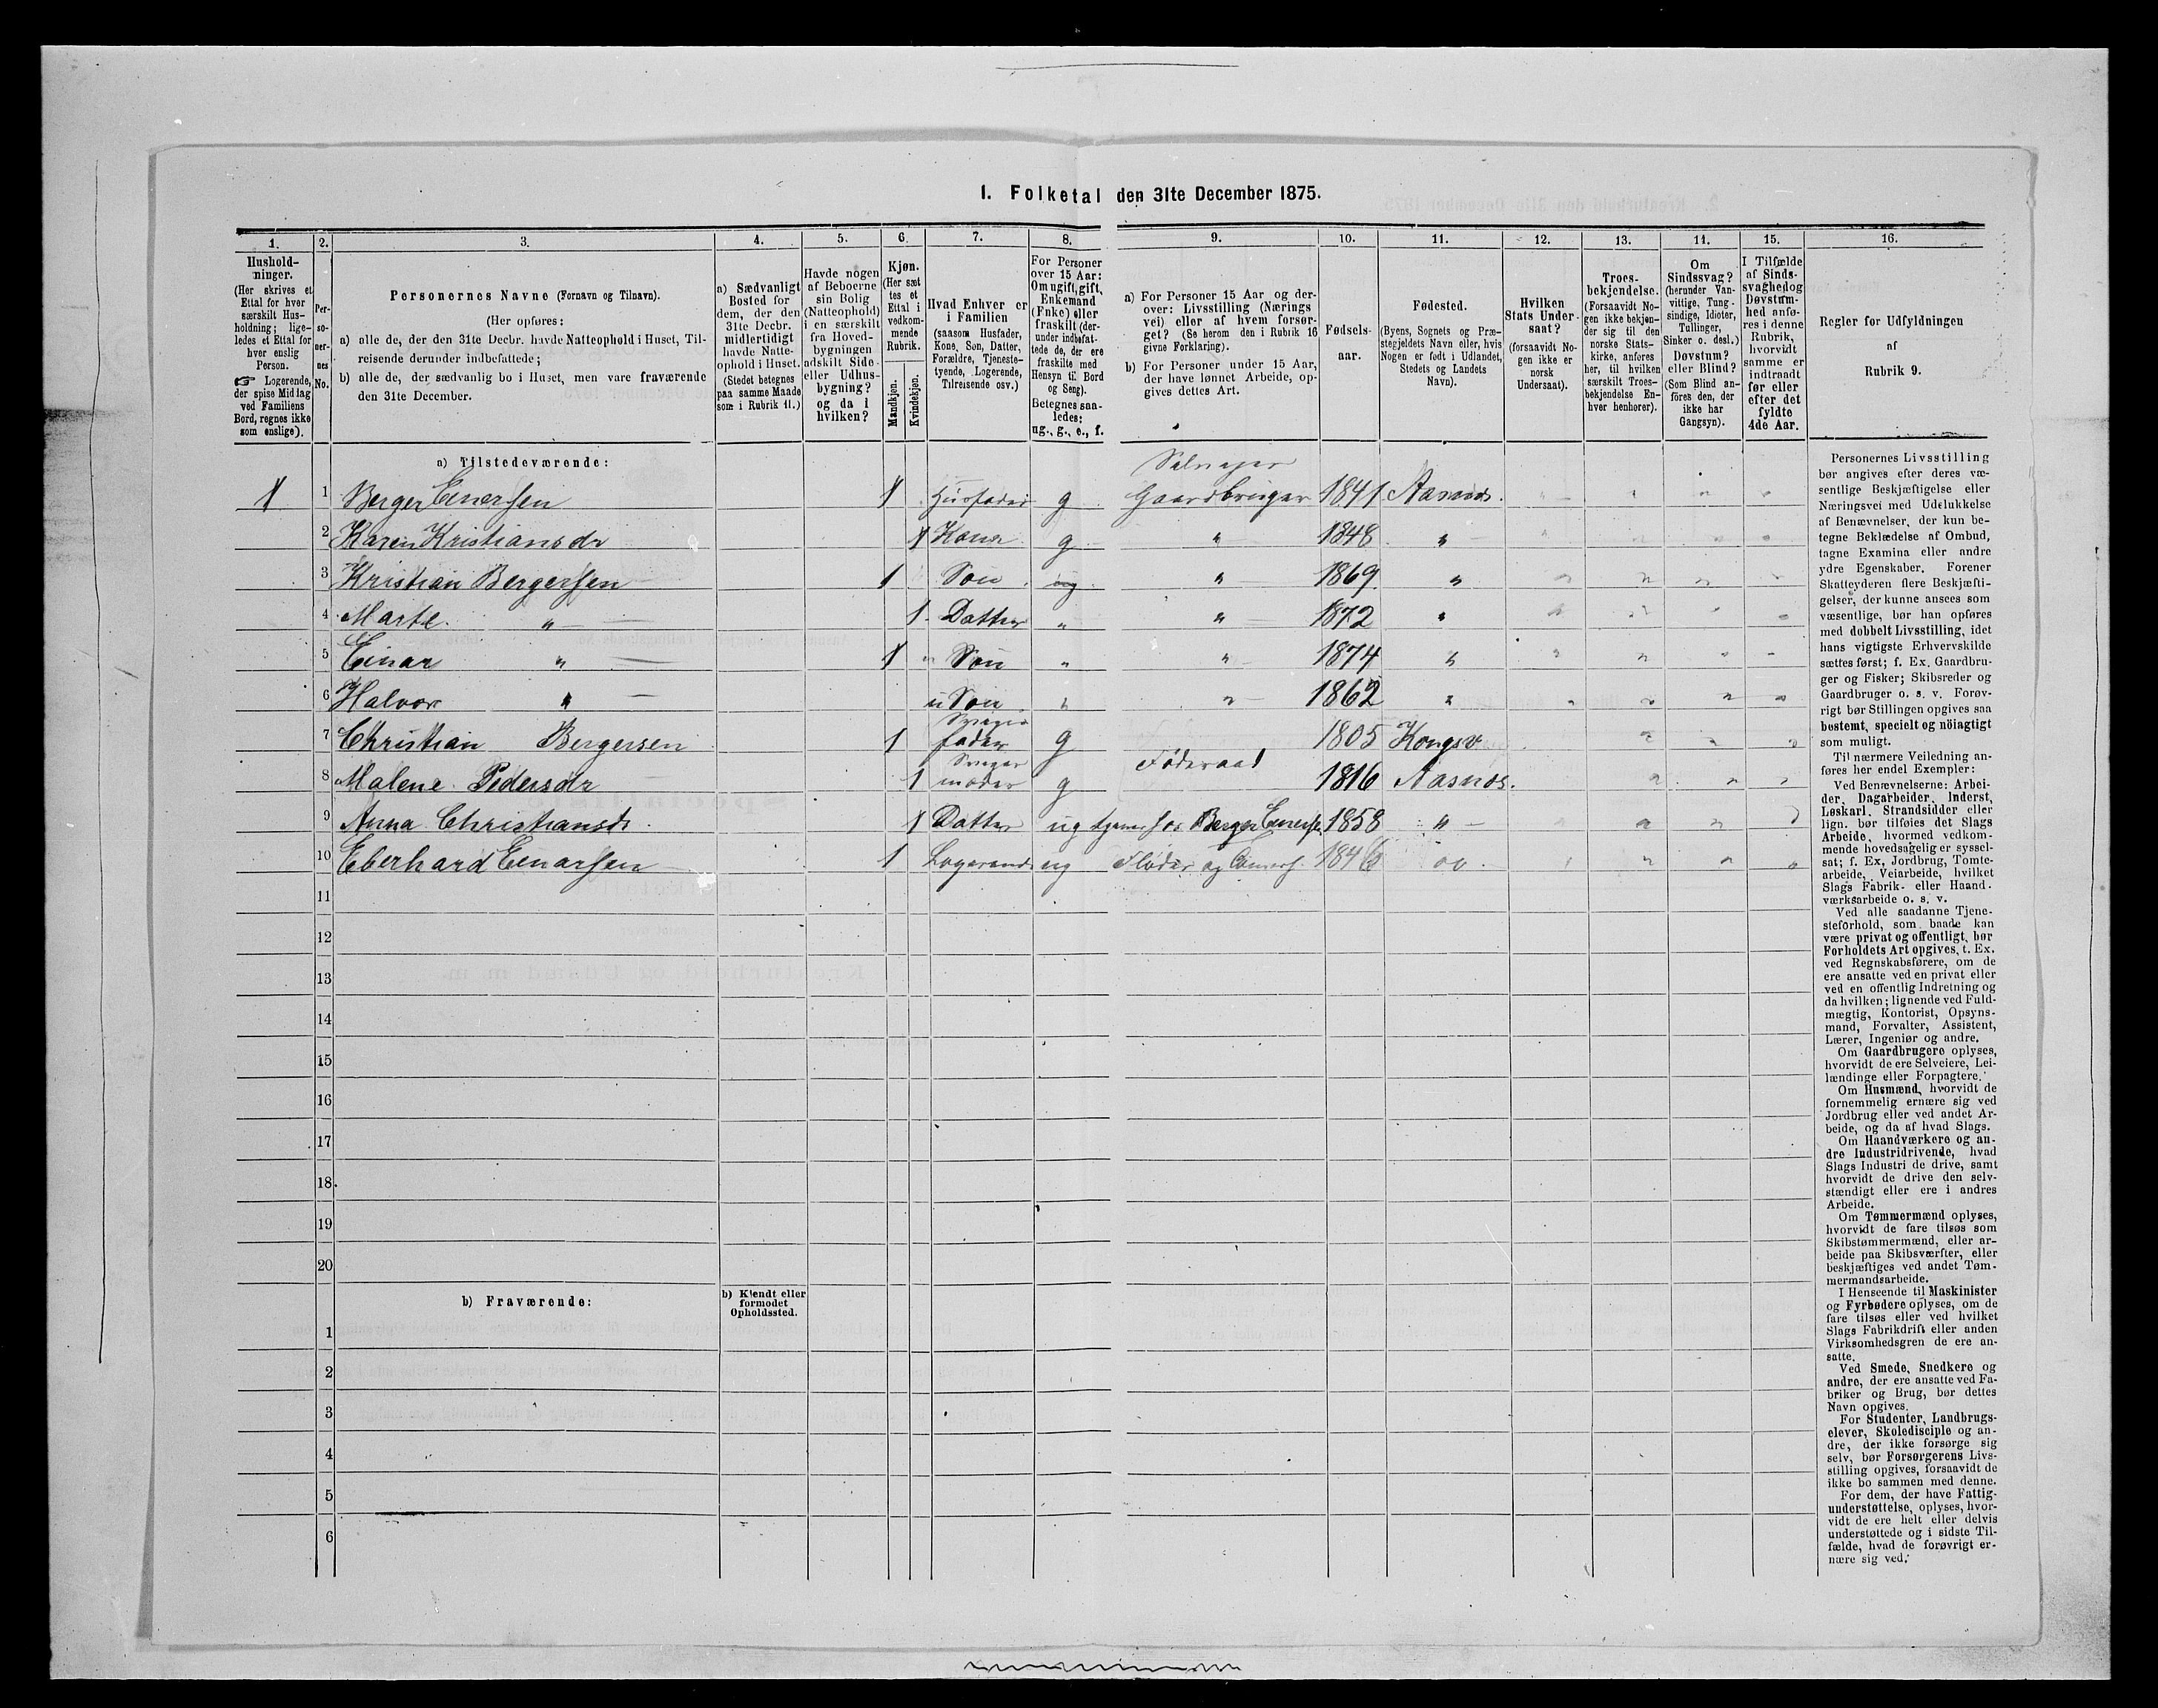 1. Folketal den 31te December 1875.
1. 2. 3. 4. 5. 6. 7. 8. 9. 10. 11. 12. 13. 14. 15. 16.
Hushold-
ninger.
(Her skrives et
Ettal for hver
særskilt Hus-
holdning; lige-
ledes et Ettal for
hver enslig
Person.
☞ Logerende,
der spise Middag
ved Familiens
Bord, regnes ikke
som enslige).
Per-
so-
ner-
nes
No.
Personernes Navne (Fornavn og Tilnavn).
(Her opføres:
a) alle de, der den 31te Decbr. havde Natteophold i Huset, Til-
reisende derunder indbefattede;
b) alle de, der sædvanlig bo i Huset, men vare fraværende
den 31te December.
a) Sædvanligt
Bosted for
dem, der den
31te Decbr.
midlertidigt
havde Natte-
ophold i Huset.
(Stedet betegnes
paa samme Maade
som i Rubrik 11.)
Havde nogen
af Beboerne
sin Bolig
(Natteophold)
i en særskilt
fra Hoved-
bygningen
adskilt Side-
eller Udhus-
bygning?
og da i
hvilken?
Kjøn.
(Her sæt
tes et
Ettal i
vedkom-
mende
Rubrik.
Mandkjøn.
Kvindekjøn.
Hvad Enhver er
i Familien
(saasom Husfader,
Kone, Søn, Datter,
Forældre, Tjeneste-
tyende, Logerende,
Tilreisende osv.)
For Personer
over 15 Aar:
Om ugift, gift,
Enkemand
(Enke) eller
fraskilt (der-
under indbefat-
tede de, der ere
fraskilte med
Hensyn til Bord
og Seng).
Betegnes saa-
ledes:
ug., g., e., f.
a) For Personer 15 Aar og der-
over: Livsstilling (Nærings
vei) eller af hvem forsør-
get? (Se herom den i Rubrik 16
givne Forklaring).
b) For Personer under 15 Aar,
der have lønnet Arbeide, op-
gives dettes Art.
Fødsels-
aar.
Fødested.
(Byens, Sognets og Præ-
stegjeldets Navn eller, hvis
Nogen er født i Udlandet,
Stedets og Landets
Navn).
Hvilken
Stats Under-
saat?
(forsaavidt No-
gen ikke er
norsk
Undersaat).
Troes-
bekjendelse.
(Forsaavidt No-
gen ikke bekjen-
der sig til den
norske Stats-
kirke, anføres
her, til hvilken
særskilt Troes-
bekjendelse En-
hver henhører).
Om
Sindssvag?
(herunder Van-
vittige, Tung-
sindige, Idioter,
Tullinger,
Sinker o. desl.)
Døvstum?
eller Blind?
(Som Blind an-
føres den, der
ikke har
Gangsyn).
I Tilfælde
af Sinds-
svaghed og
Døvstum-
hed anfø-
res i denne
Rubrik,
hvorvidt
samme er
indtraadt
før eller
efter det
fyldte
4de Aar.
Regler for Udfyldningen
af
Rubrik 9.
a) Tilstedeværende:
1 1 Berger Einersen 1 Husfader g Selveger Gaardbruger 1841 Aasnes.
2 Karen Kristiansdr 1 Kone g " 1848 "
3 Kristian Bergersen 1 Søn ug " 1869 "
4 Marte " 1 Datter " " 1872 "
5 Einar " 1 Søn " " 1874 "
6 Halvor " Søn " " 1862 "
7 Christian Bergersen 1 Svigerfader g Føderaad 1805 Kongsv
8 Malene Pedersdr 1 Svigermoder g 1816 Aasnes.
9 Anna Christiansdr 1 Datter ug tjener hos Berger Einersen 1858 "
10 Eberhard Einarsen 1 Logerende ug Fløder og 1846
11
12
13
14
15
16
17
18
19
20
b) Fraværende:
b) Kjendt eller
formodet
Opholdssted.
1
2
3
4
5
6
Personernes Livsstilling
bør angives efter deres væ-
sentlige Beskjæftigelse eller
Næringsvei med Udelukkelse
af Benævnelser, der kun be-
tegne Beklædelse af Ombud,
tagne Examina eller andre
ydre Egenskaber. Forener
Skatteyderen flere Beskjæfti-
gelser, der kunne ansees som
væsentlige, bør han opføres
med dobbelt Livsstilling, idet
hans vigtigste Erhvervskilde
sættes først; f. Ex. Gaardbru-
ger og Fisker; Skibsreder og
Gaardbruger o. s. v. Forøv-
rigt bør Stillingen opgives saa
bestemt, specielt og nöiagtigt
som muligt.
Til nærmere Veiledning an-
føres her endel Exempler:
Ved Benævnelserne: Arbei-
der, Dagarbeider, Inderst,
Løskarl, Strandsidder eller
lign. bør tilføies det Slags
Arbeide, hvormed vedkom-
mende hovedsagelig er syssel-
sat; f. Ex, Jordbrug, Tomte-
arbeide, Veiarbeide, hvilket
Slags Fabrik- eller Haand-
værksarbeide o. s. v.
Ved alle saadanne Tjene-
steforhold, som baade kan
være privat og offentligt, bør
Forholdets Art opgives, t. Ex.
ved Regnskabsførere, om de
ere ansatte ved en privat eller
ved en offentlig Indretning og
da hvilken; lignende ved Fuld-
mægtig, Kontorist, Opsyns-
mand, Forvalter, Assistent,
Lærer, Ingeniør og andre.
Om Gaardbrugere oplyses,
hvorvidt de ere Selveiere, Lei-
lændinge eller Forpagtere.
Om Husmænd, hvorvidt de
fornemmelig ernære sig ved
Jordbrug eller ved andet Ar-
beide, og da af hvad Slags.
Om Haandværkere og an-
dre Industridrivende, hvad
Slags Industri de drive, samt
hvorvidt de drive den selv-
stændigt eller ere i andres
Arbeide.
Om Tømmermænd oplyses,
hvorvidt de fare tilsøs som
Skibstømmermænd, eller ar-
beide paa Skibsværfter, eller
beskjæftiges ved andet Tøm-
mermandsarbeide.
I Henseende til Maskinister
og Fyrbødere oplyses, om de
fare tilsøs eller ved hvilket
Slags Fabrikdrift eller anden
Virksomhedsgren de ere an-
satte.
Ved Smede, Snedkere og
andre, der ere ansatte ved Fa-
briker og Brug, bør dettes
Navn opgives.
For Studenter, Landbrugs-
elever, Skoledisciple og an-
dre, der ikke forsørge sig
selv, bør Forsørgerens Livs-
stilling opgives, forsaavidt de
ikke bo sammen med denne.
For dem, der have Fattig-
understøttelse, oplyses, hvor-
vidt de ere helt eller delvis
understøttede og i sidste Til-
fælde, hvad de forøvrigt er-
nære sig ved.